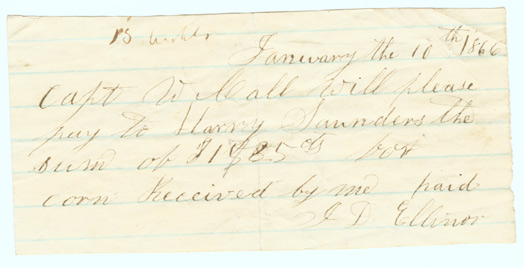 15
January the 10th 1866
Capt W Hall Will please
pay to Harry Saunders the
sum of $85 for
corn Received by me paid
J D Ellinor